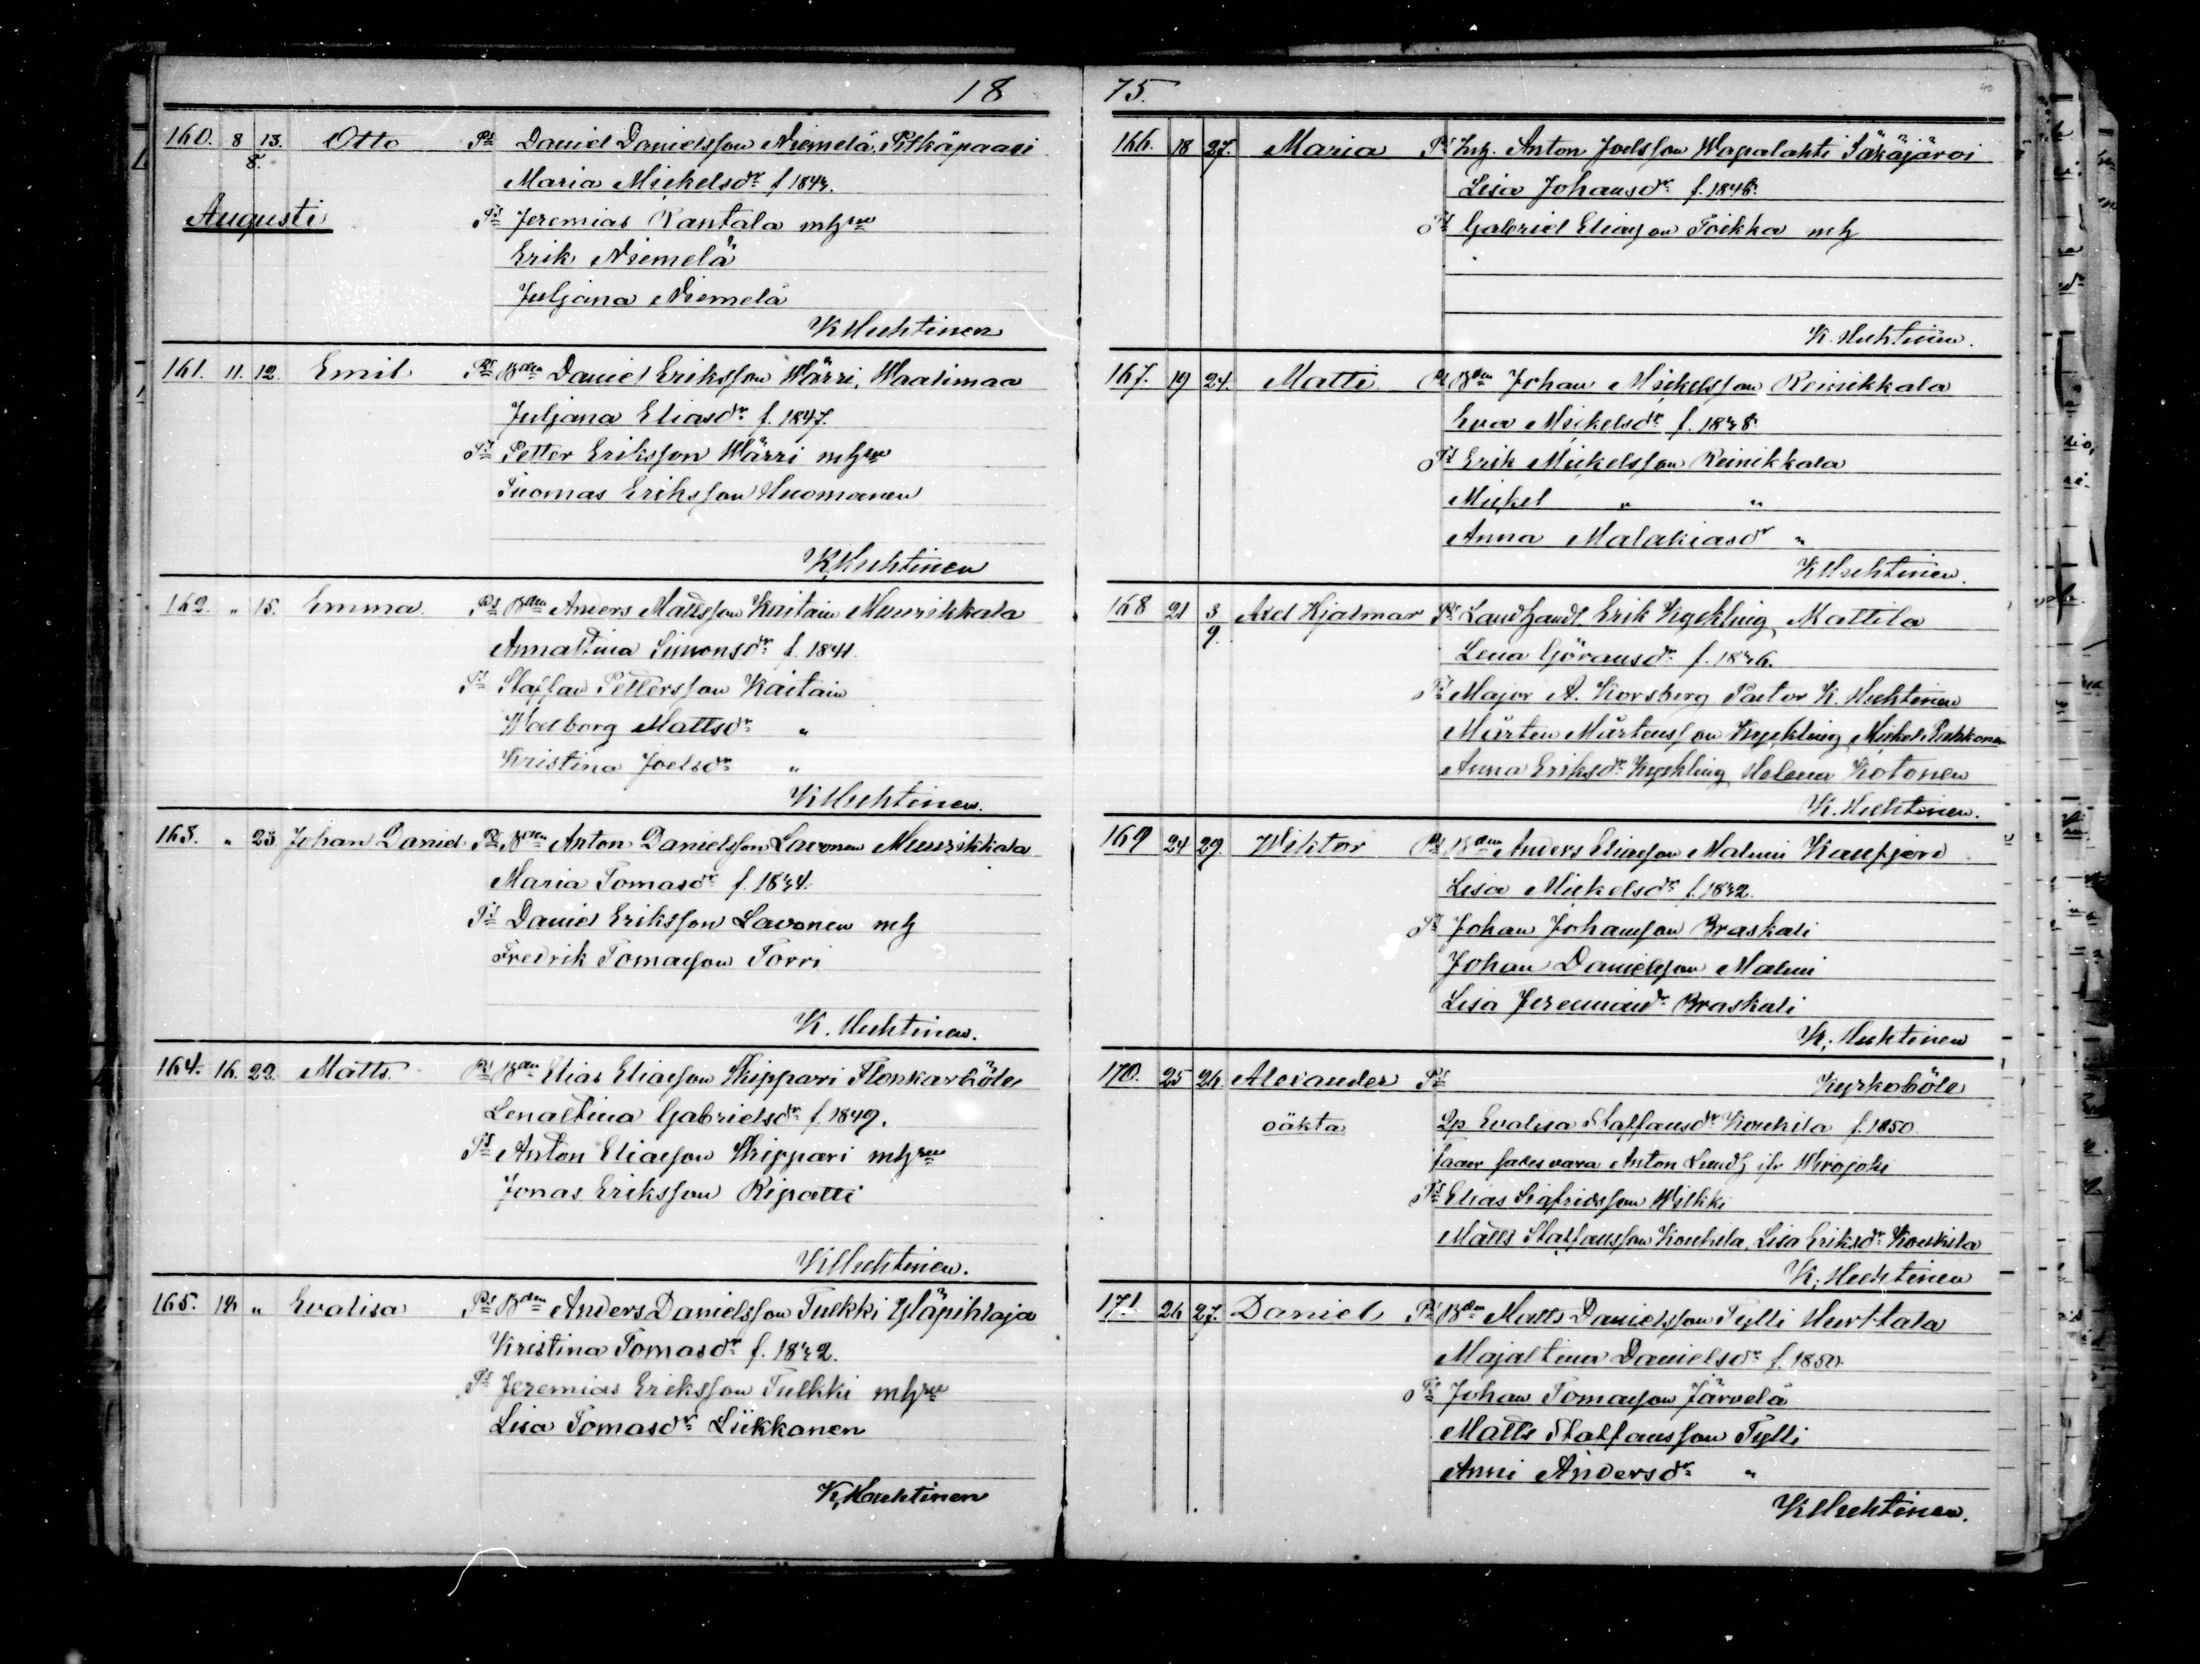 18
160. 8 13. Otto Ps Daniel Danielsson Niemelä, Pitkäpaasi
8. Maria Mickelsdr f 1843.
Augusti Ts Jeremias Rantala mh
Erik Niemelä
Juljana Niemelä
K Huhtinen
161. 11. 12. Emil Ps Bden Daniel Eriksson Wärri, Waalimaa
Juljana Eliasdr f. 1847.
Ts Petter Eriksson Wärri mh
Tuomas Eriksson Huomanen
K. Huhtinen
162. " 15. Emma. Ps Bden Anders Mattsson Kaitain Muurikkala
Annastina Simonsdr f. 1841.
Ts Staffan Pettersson Kaitain
Walborg Mattsdr "
Kristina Joelsdr "
K Huhtinen.
163. " 23 Johan Daniel Ps Bden Anton Danielsson Lavonen Muurikkala
Maria Tomasdr f. 1844.
Ts Daniel Eriksson Lavonen mh
Fredrik Tomasson Torri
K. Huhtinen.
164. 16. 22. Matts. Ps Bden Elias Eliasson Skippari Flonkarböle
Lenastina Gabrielsdr f. 1849.
Ts Anton Eliasson Skippari mh
Jonas Eriksson Ripatti
K Huhtinen.
165. " Evalisa Ps Bden Anders Danielsson Tulkki Yläpihlaja
Kristina Tomasdr f. 1842.
Ts Jeremias Eriksson Tulkki mh
Lisa Tomasdr Liikkanen
K, Houhtinen
75.
166. 18 27. Maria Ps Inh. Anton Joelsson Wapalahti Säkäjärvi
Lisa Johansdr f. 1846.
Ts Gabriel Eliasson Toikka mh
K. Huhtinen.
167. 19 24. Matti Ps Bden Johan Mickelsson Reinikkala
Eva Mickelsdr f. 1848.
Ts Erik Mickelsson Reinikkala
Mickel " "
Anna Malakiasdr "
K Huhtinen.
168 21 3 Axel Hjalmar Ps Landthandl. Erik Kyckling, Mattila
9. Lena Göransdr f. 1846.
Ts Major A. Forsberg Pastor K. Huhtinen
Mårten Mårtensson Kyckling, Mickel Pakkonen
Anna Eriksdr Kyckling Helena Kotonen
K. Huhtinen.
169 24 29. Wiktor Ps Bden Anders Eliasson Malmi
Lisa Mickelsdr f. 1842.
Ts Johan Johansson Braskali
Johan Danielsson Malmi
Lisa Jeremiasdr Braskali
K, Huhtinen
170. 25 26. Alexander Ps Kyrkoböle
oäkta Qp Evalisa Staffansdr Kouhila f. 1850.
vara Anton Lund ifr Wirojoki
Ts Elias Sigfridsson Wilkki
Matts Staffansson Kouhila, Lisa Eriksdr Kouhila
K, Huhtinen
171 26 27. Daniel Ps Bden Matts Danielsson Tylli Hurttala
Majastina Danielsdr f. 1850.
Ts Johan Tomasson Järvelä
Matts Staffansson Tylli
Anni Andersdr "
K Huhtinen.